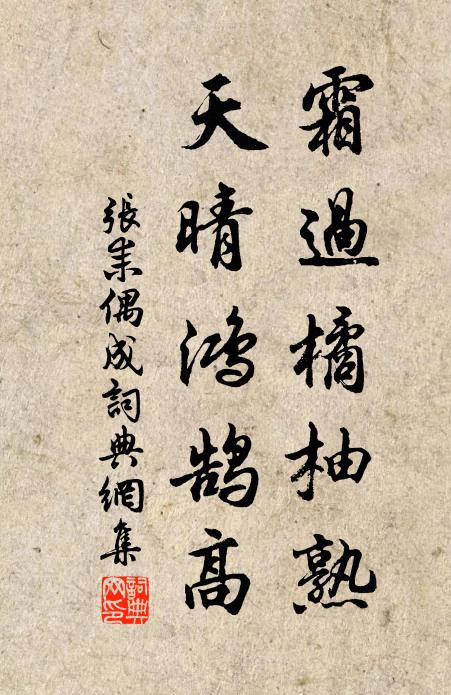 霜過橘柚熟
天晴鴻鵠高
張耒偶成詞典網集
詞典网印